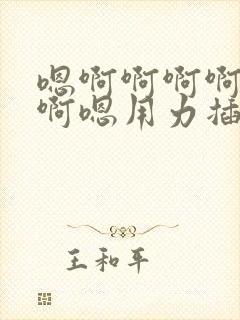 嗯啊啊啊啊
啊嗯用力插
王和平